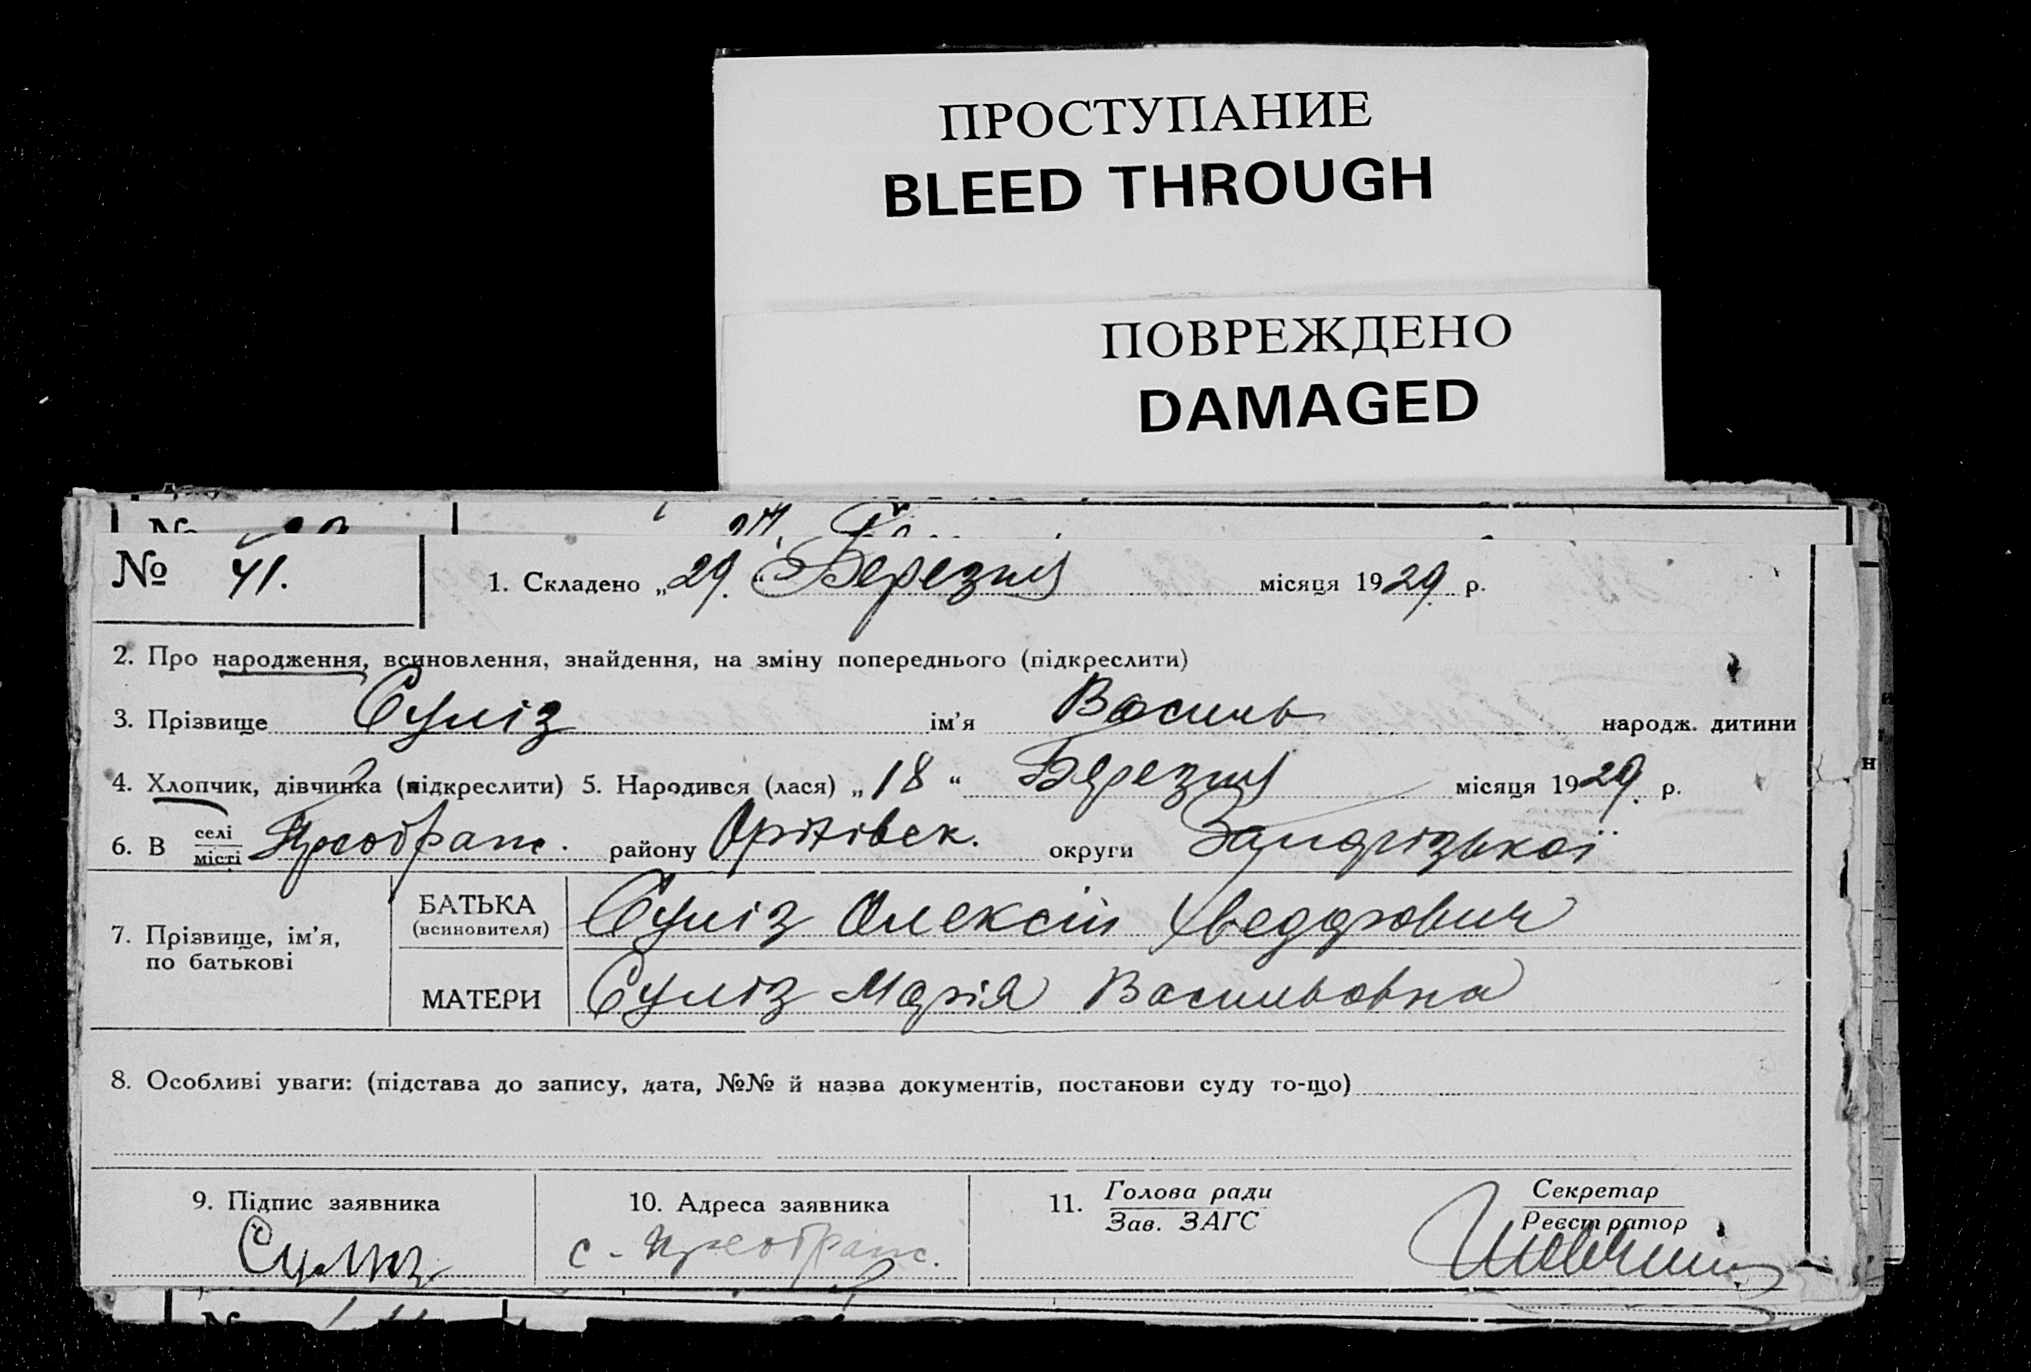 ПРОСТУПАНИЕ
BLEED THROUGH
ПОВРЕЖДЕНО
DAMAGED
№ 41. 1. Складено „29.“ Березня місяця 1929 р.
2. Про народження, всиновлення, знайдення, на зміну попереднього (підкреслити)
3. Прізвище Суліз ім’я Василь народж. дитини
4. Хлопчик, дівчинка (підкреслити) 5. Народився (лася) „18“ Березня місяця 1929 р.
6. В селі/місті Преображ. району Оріхівськ. округи Запорізької
7. Прізвище, ім’я, по батькові
БАТЬКА (всиновителя) Суліз Олексій Хведорович
МАТЕРИ Суліз Марія Васильовна
8. Особливі уваги: (підстава до запису, дата, №№ й назва документів, постанови суду то-що)
9. Підпис заявника 10. Адреса заявника 11. Голова ради Секретар
Зав. ЗАГС Реєстратор
Суліз с. Преображ.